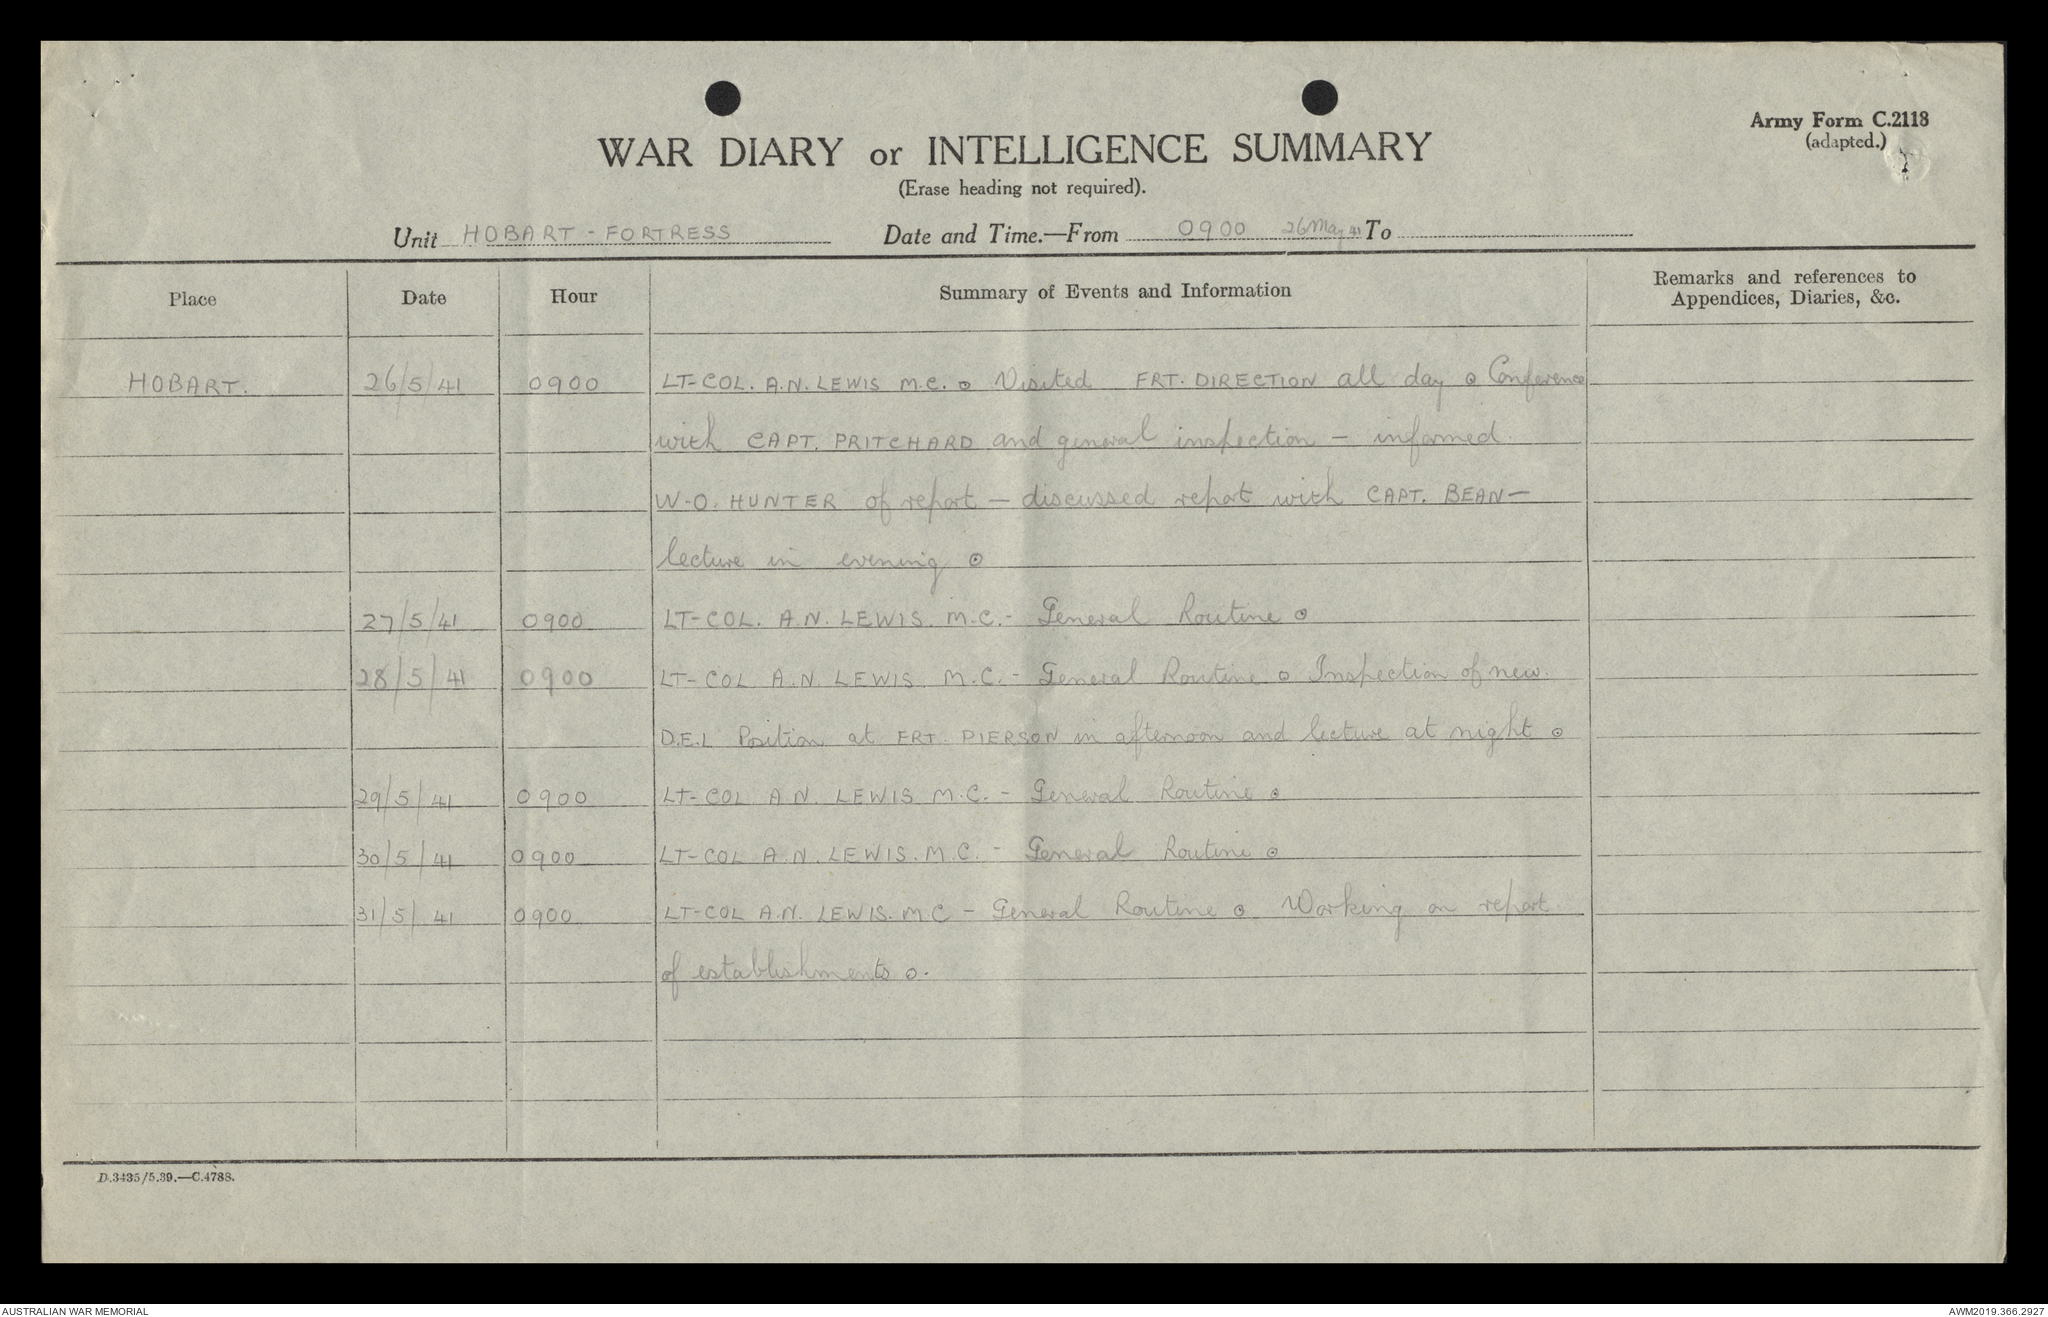 Army Form C.2118
(adapted.)
WAR DIARY or INTELLIGENCE SUMMARY
(Erase heading not required).
Unit HOBART - FORTRESS Date and Time.—From 0900 26 May 41 To
Place Date Hour Summary of Events and Information Remarks and references to
Appendices, Diaries, &c.
HOBART. 26/5/41 0900 LT-COL. A.N. LEWIS M.C. ⊙ Visited FRT. DIRECTION all day ⊙ Conference
with CAPT. PRITCHARD and general inspection — informed.
W-O. HUNTER of report — discussed report with CAPT. BEAN —
lecture in evening ⊙
27/5/41 0900 LT-COL. A.N. LEWIS. M.C. - General Routine ⊙
28/5/41 0900 LT-COL A.N. LEWIS. M.C. - General Routine ⊙ Inspection of new.
D.E.L Position at FRT. PIERSON in afternoon and lecture at night ⊙
29/5/41 0900 LT-COL A.N. LEWIS M.C. - General Routine ⊙
30/5/41 0900 LT-COL A.N. LEWIS. M.C. - General Routine ⊙
31/5/41 0900 LT-COL A.N. LEWIS. M.C - General Routine ⊙ Working on report.
of establishments ⊙.
D.3435/5.39.—C.4788.
AUSTRALIAN WAR MEMORIAL AWM2019.366.2927